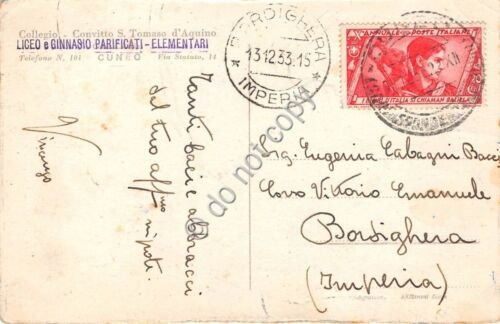 Collegio - Convitto S. Tomaso d'Aquino
LICEO e GINNASIO PARIFICATI - ELEMENTARI
CUNEO
Telefono N. 101
Via Statuto, 14
BORDIGHERA
13.12.33.15
* IMPERIA *
I ANNUALE POSTE ITALIANE
I BIMBI D'ITALIA SI CHIAMAN BALILLA
Tanti baci e abbracci
dal tuo aff.mo nipote.
Vincenzo
do not copy
Sig. Eugenia Cabagni Bacci
Corso Vittorio Emanuele
Bordighera
(Imperia)